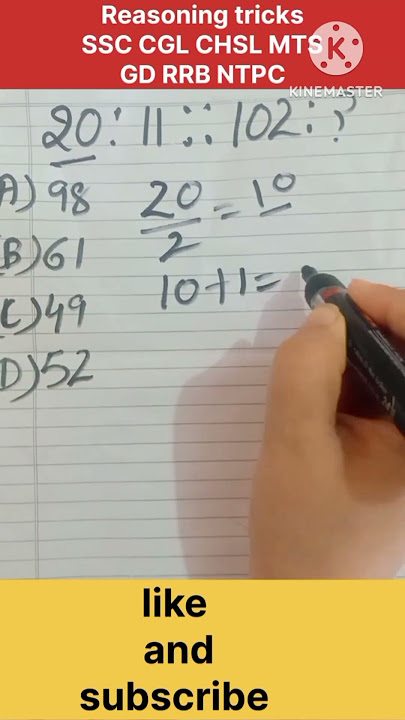 Reasoning tricks
SSC CGL CHSL MTS
GD RRB NTPC
KINEMASTER
20 : 11 :: 102 : ?
A) 98
B) 61
C) 49
D) 52
20/2 = 10
10+1=
like
and
subscribe